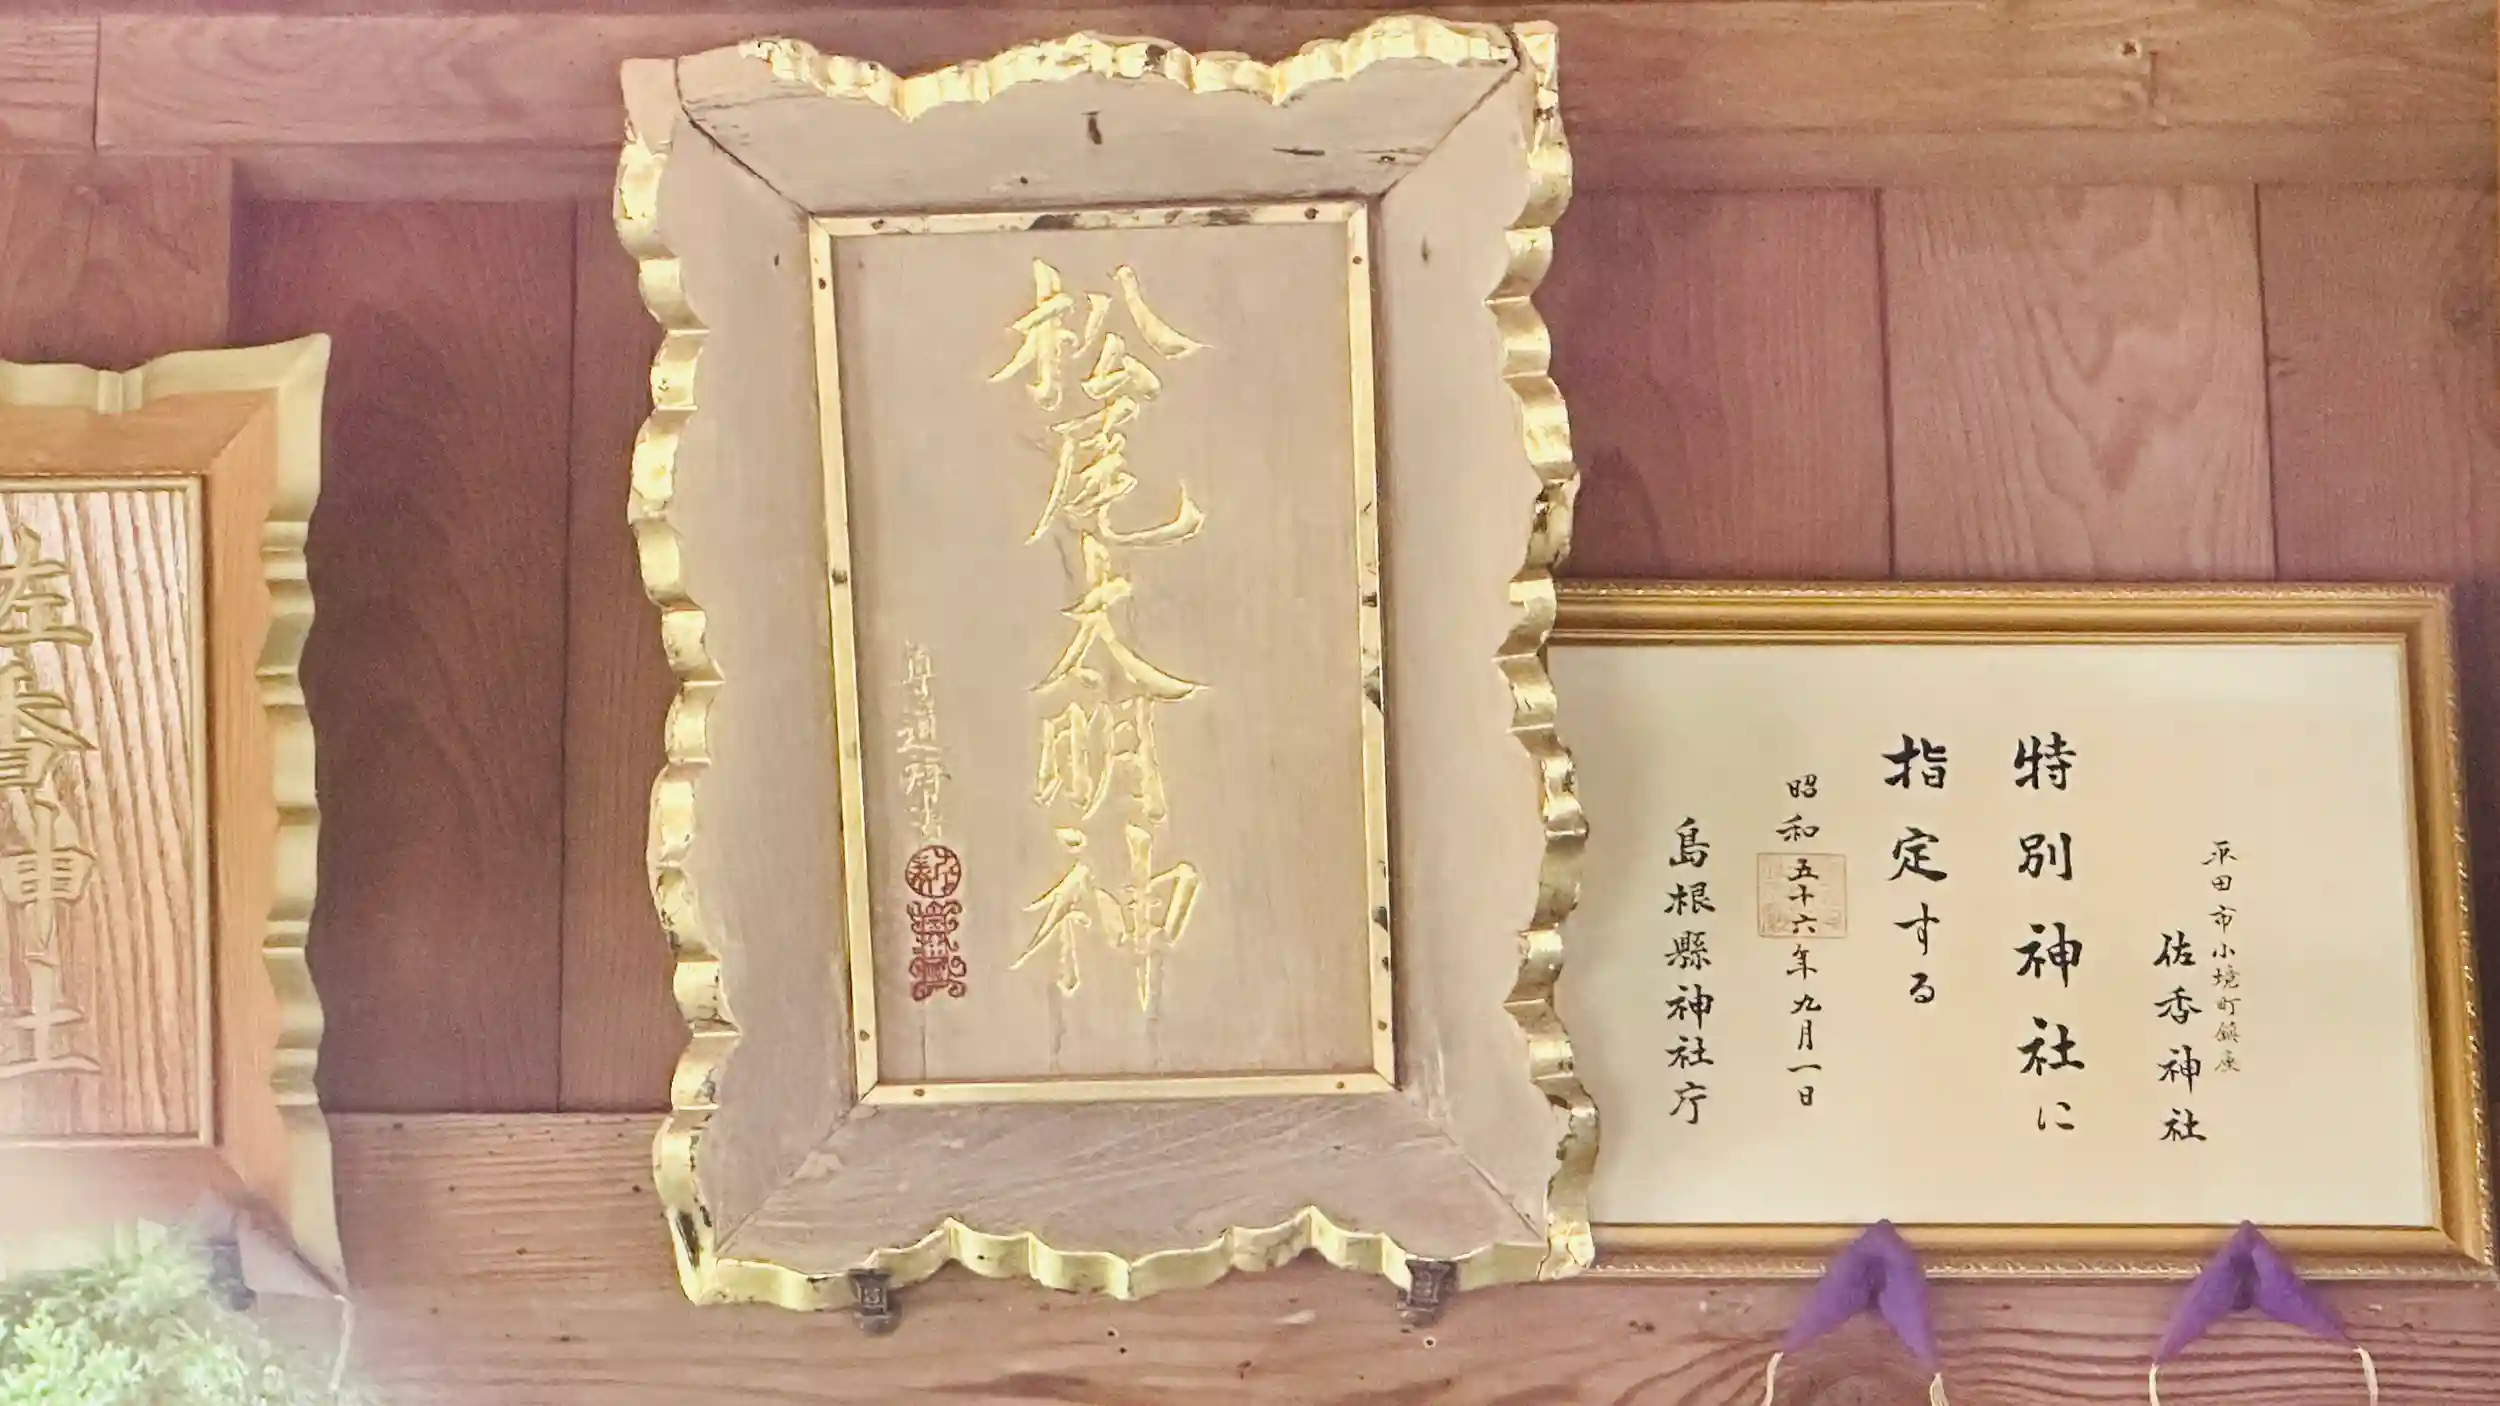 佐香神社
松尾大明神
尊通拜書
平田市小境町鎮座
佐香神社
特別神社に
指定する
昭和五十六年九月一日
島根縣神社庁